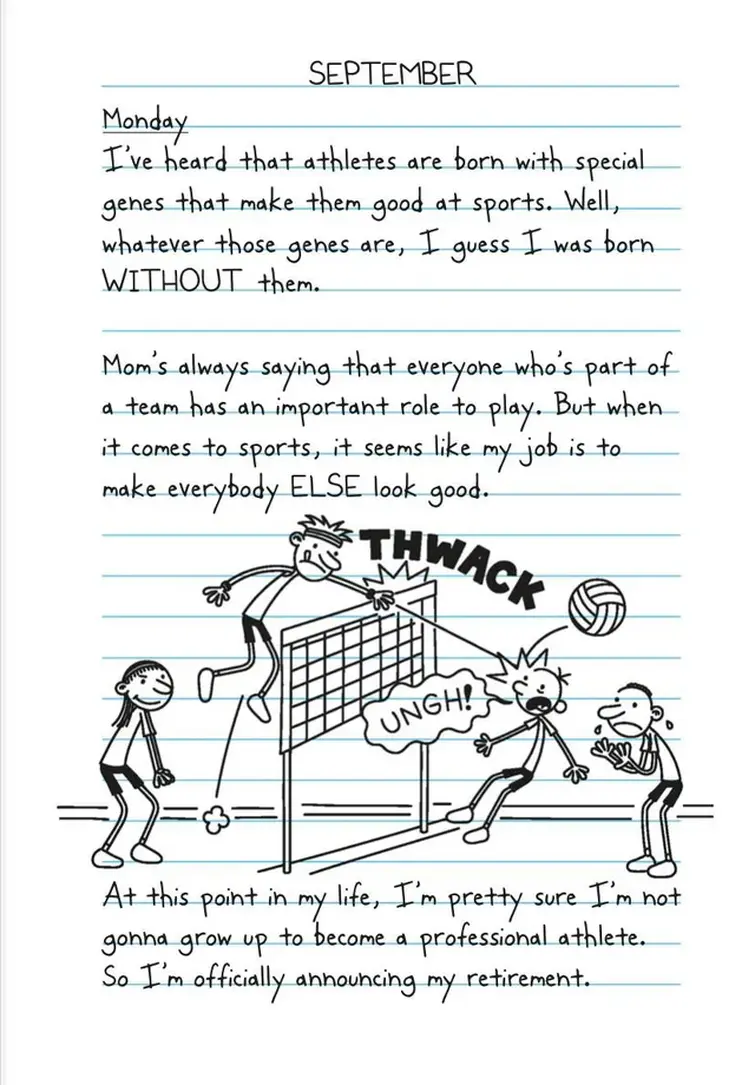 SEPTEMBER
Monday
I've heard that athletes are born with special
genes that make them good at sports. Well,
whatever those genes are, I guess I was born
WITHOUT them.
Mom's always saying that everyone who's part of
a team has an important role to play. But when
it comes to sports, it seems like my job is to
make everybody ELSE look good.
THWACK
UNGH!
At this point in my life, I'm pretty sure I'm not
gonna grow up to become a professional athlete.
So I'm officially announcing my retirement.